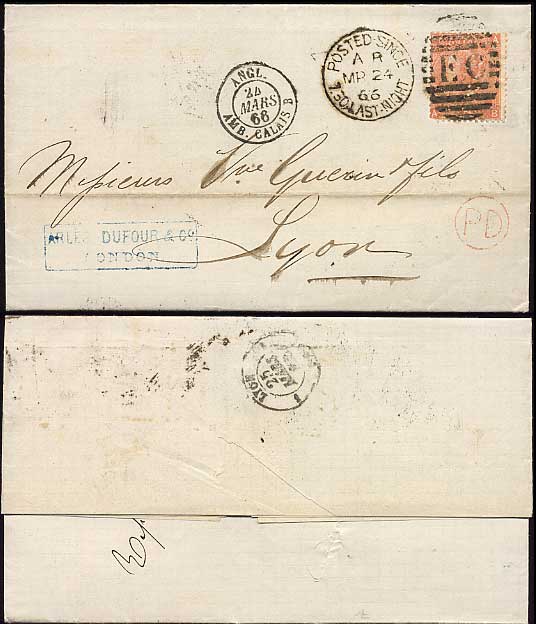 POSTED SINCE
A R
MR 24
66
7.30 LAST NIGHT
E C
A B
ANGL.
24
MARS
66
AMB. CALAIS B
Messieurs Vve Guerin & fils
PD
ARLES DUFOUR & Co
LONDON
Lyon
LYON
25
MARS